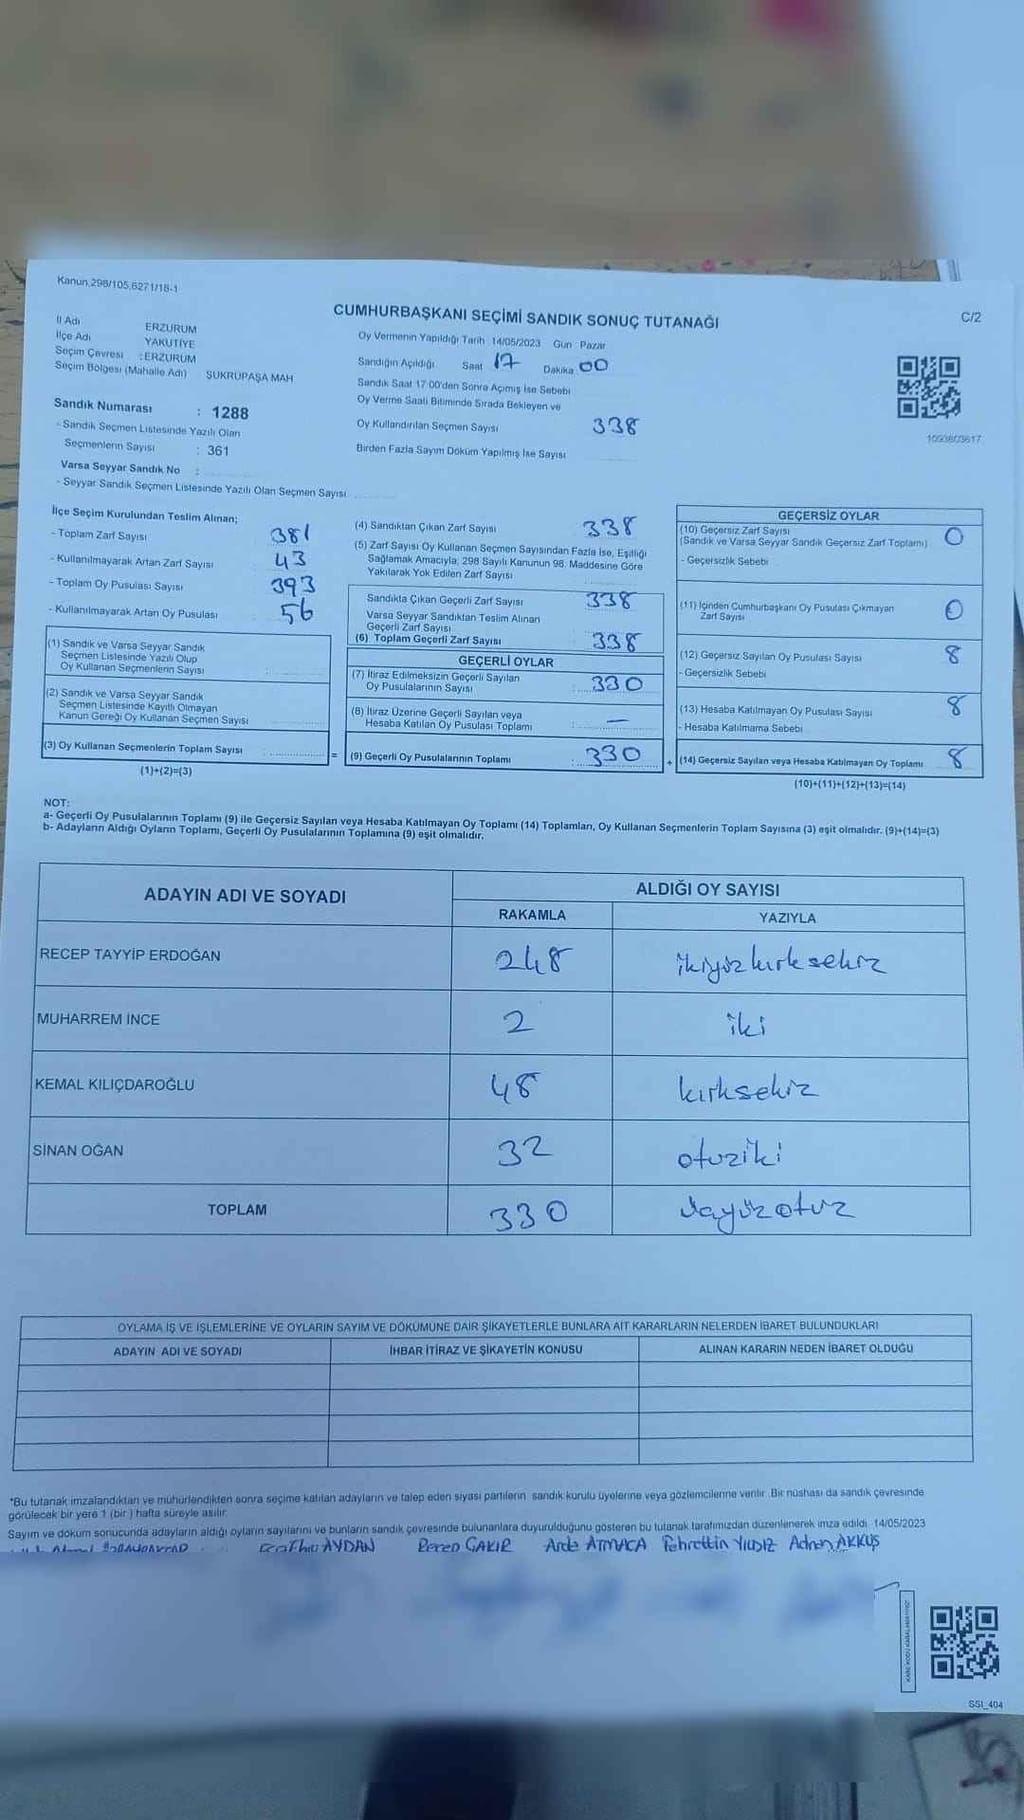 Kanun.298/105,6271/18-1
CUMHURBAŞKANI SEÇİMİ SANDIK SONUÇ TUTANAĞI
C/2
İl Adı ERZURUM
İlçe Adı YAKUTİYE
Seçim Çevresi :ERZURUM
Seçim Bölgesi (Mahalle Adı) ŞUKRUPAŞA MAH
Oy Vermenin Yapıldığı Tarih 14/05/2023 Gün Pazar
Sandığın Açıldığı Saat 17 Dakika 00
Sandık Saat 17 00'den Sonra Açımış İse Sebebi
Oy Verme Saati Bitiminde Sırada Bekleyen ve
Oy Kullandırılan Seçmen Sayısı 338
Birden Fazla Sayım Döküm Yapılmış İse Sayısı
1093803617
Sandık Numarası : 1288
- Sandık Seçmen Listesinde Yazılı Olan
Seçmenlerin Sayısı : 361
Varsa Seyyar Sandık No :
- Seyyar Sandık Seçmen Listesinde Yazılı Olan Seçmen Sayısı
İlçe Seçim Kurulundan Teslim Alınan;
- Toplam Zarf Sayısı 381
- Kullanılmayarak Artan Zarf Sayısı 43
- Toplam Oy Pusulası Sayısı 393
- Kullanılmayarak Artan Oy Pusulası 56
(1) Sandık ve Varsa Seyyar Sandık
Seçmen Listesinde Yazılı Olup
Oy Kullanan Seçmenlerin Sayısı
(2) Sandık ve Varsa Seyyar Sandık
Seçmen Listesinde Kayıtlı Olmayan
Kanun Gereği Oy Kullanan Seçmen Sayısı
(3) Oy Kullanan Seçmenlerin Toplam Sayısı
(1)+(2)=(3)
=
(4) Sandıktan Çıkan Zarf Sayısı 338
(5) Zarf Sayısı Oy Kullanan Seçmen Sayısından Fazla İse, Eşitliği
Sağlamak Amacıyla, 298 Sayılı Kanunun 98. Maddesine Göre
Yakılarak Yok Edilen Zarf Sayısı
Sandıkta Çıkan Geçerli Zarf Sayısı 338
Varsa Seyyar Sandıktan Teslim Alınan
Geçerli Zarf Sayısı
(6) Toplam Geçerli Zarf Sayısı 338
GEÇERLİ OYLAR
(7) İtiraz Edilmeksizin Geçerli Sayılan
Oy Pusulalarının Sayısı : 330
(8) İtiraz Üzerine Geçerli Sayılan veya
Hesaba Katılan Oy Pusulası Toplamı : —
(9) Geçerli Oy Pusulalarının Toplamı : 330
+
GEÇERSİZ OYLAR
(10) Geçersiz Zarf Sayısı
(Sandık ve Varsa Seyyar Sandık Geçersiz Zarf Toplamı) 0
- Geçersizlik Sebebi
(11) İçinden Cumhurbaşkanı Oy Pusulası Çıkmayan
Zarf Sayısı 0
(12) Geçersiz Sayılan Oy Pusulası Sayısı 8
- Geçersizlik Sebebi
(13) Hesaba Katılmayan Oy Pusulası Sayısı 8
- Hesaba Katılmama Sebebi
(14) Geçersiz Sayılan veya Hesaba Katılmayan Oy Toplamı 8
(10)+(11)+(12)+(13)=(14)
NOT:
a- Geçerli Oy Pusulalarının Toplamı (9) ile Geçersiz Sayılan veya Hesaba Katılmayan Oy Toplamı (14) Toplamları, Oy Kullanan Seçmenlerin Toplam Sayısına (3) eşit olmalıdır. (9)+(14)=(3)
b- Adayların Aldığı Oyların Toplamı, Geçerli Oy Pusulalarının Toplamına (9) eşit olmalıdır.
ADAYIN ADI VE SOYADI ALDIĞI OY SAYISI
RAKAMLA YAZIYLA
RECEP TAYYİP ERDOĞAN 248 ikiyüzkırksekiz
MUHARREM İNCE 2 iki
KEMAL KILIÇDAROĞLU 48 kırksekiz
SİNAN OĞAN 32 otuziki
TOPLAM 330 üçyüzotuz
OYLAMA İŞ VE İŞLEMLERİNE VE OYLARIN SAYIM VE DÖKÜMÜNE DAİR ŞİKAYETLERLE BUNLARA AİT KARARLARIN NELERDEN İBARET BULUNDUKLARI
ADAYIN ADI VE SOYADI İHBAR İTİRAZ VE ŞİKAYETİN KONUSU ALINAN KARARIN NEDEN İBARET OLDUĞU
*Bu tutanak imzalandıktan ve mühürlendikten sonra seçime katılan adayların ve talep eden siyasi partilerin sandık kurulu üyelerine veya gözlemcilerine verilir. Bir nüshası da sandık çevresinde
görülecek bir yere 1 (bir) hafta süreyle asılır.
Sayım ve döküm sonucunda adayların aldığı oyların sayılarını ve bunların sandık çevresinde bulunanlara duyurulduğunu gösteren bu tutanak tarafımızdan düzenlenerek imza edildi. 14/05/2023
AYDAN Beren ÇAKIR Arda ATMACA Fahrettin YILDIZ Adnan AKKUŞ
SSI_404